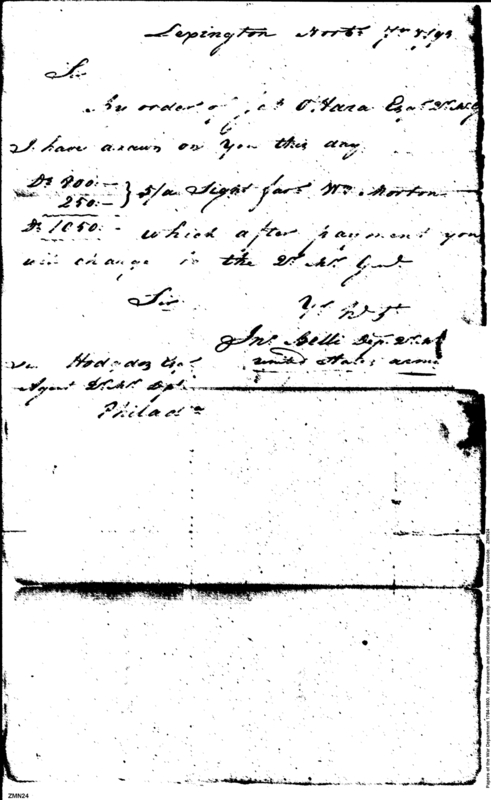 Lexington Novbr 7th 1793
Sir
order of O'Hara Esqr Qr Mr G
I have drawn on you this day
Ds 800.—
250.— } 5/d Sight favr Wm Morton
Ds 1050.— which after payment you
will charge to the Qr Mr Genl
Sir
Yr hb St
Jno Belli Dep. Qr Mr
united States army
Hodgdon Esqr
Agent Qr Mr Dept
Philada
Papers of the War Department 1784-1800. For research and instructional use only. See Permissions Guide. ZMN24
ZMN24